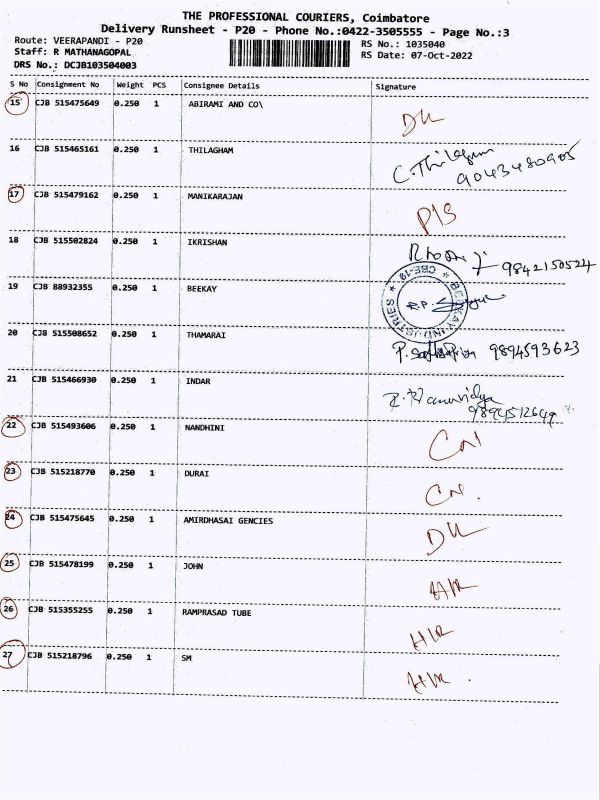 THE PROFESSIONAL COURIERS, Coimbatore
Delivery Runsheet - P20 - Phone No.:0422-3505555 - Page No.:3
Route: VEERAPANDI - P20
RS No.: 1035040
Staff: R MATHANAGOPAL
RS Date: 07-Oct-2022
DRS No.: DCJB103504003
S No Consignment No Weight PCS Consignee Details Signature
15 CJB 515475649 0.250 1 ABIRAMI AND CO\ DL
16 CJB 515465161 0.250 1 THILAGHAM C. Thilagam
9043480905
17 CJB 515479162 0.250 1 MANIKARAJAN P1S
18 CJB 515502824 0.250 1 IKRISHAN
9842150524
19 CJB 88932355 0.250 1 BEEKAY BEEKAY INDUSTRIES * CBE-19 *
20 CJB 515508652 0.250 1 THAMARAI 9894593623
21 CJB 515466930 0.250 1 INDAR
9894512649
22 CJB 515493606 0.250 1 NANDHINI
23 CJB 515218770 0.250 1 DURAI
24 CJB 515475645 0.250 1 AMIRDHASAI GENCIES DL
25 CJB 515478199 0.250 1 JOHN HR
26 CJB 515355255 0.250 1 RAMPRASAD TUBE HR
27 CJB 515218796 0.250 1 SM HR